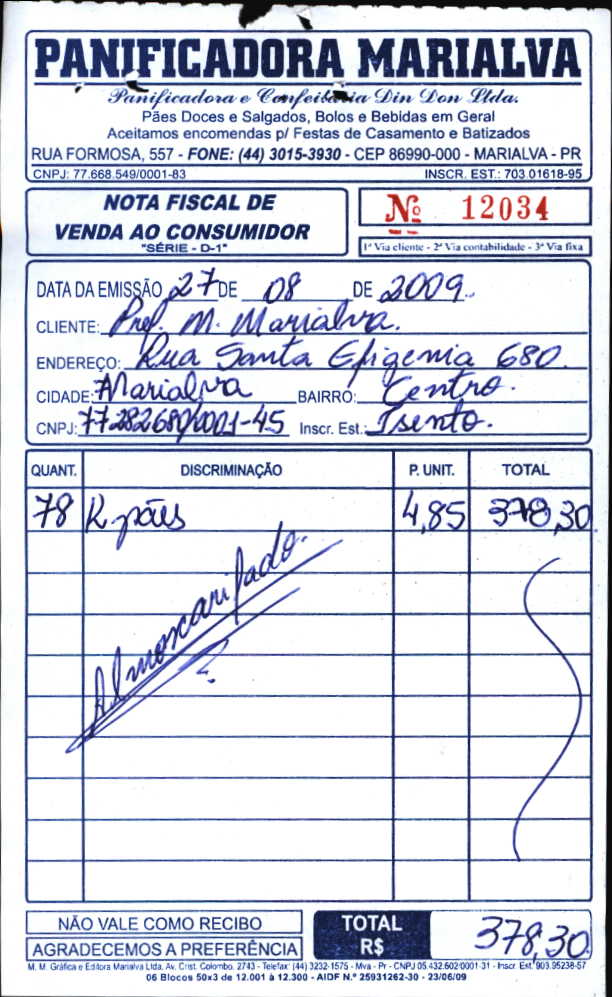 PANIFICADORA MARIALVA
Panificadora e Confeitaria Din Don Ltda.
Pães Doces e Salgados, Bolos e Bebidas em Geral
Aceitamos encomendas p/ Festas de Casamento e Batizados
RUA FORMOSA, 557 - FONE: (44) 3015-3930 - CEP 86990-000 - MARIALVA - PR
CNPJ: 77.668.549/0001-83 INSCR. EST.: 703.01618-95
NOTA FISCAL DE
VENDA AO CONSUMIDOR
"SÉRIE - D-1"
Nº 12034
1ª Via cliente - 2ª Via contabilidade - 3ª Via fixa
DATA DA EMISSÃO 27 DE 08 DE 2009.
CLIENTE: Pref. M. Marialva.
ENDEREÇO: Rua Santa Efigenia 680.
CIDADE: Marialva BAIRRO: Centro.
CNPJ: 77.282.680/0001-45 Inscr. Est.: Isento.
QUANT. DISCRIMINAÇÃO P. UNIT. TOTAL
78 K pães 4,85 378,30
Almoxarifado.
NÃO VALE COMO RECIBO
AGRADECEMOS A PREFERÊNCIA
TOTAL R$ 378,30
M. M. Gráfica e Editora Marialva Ltda. Av. Crist. Colombo, 2743 - Telefax: (44) 3232-1575 - Mva - Pr - CNPJ 05.432.602/0001-31 - Inscr. Est. 903.95238-57
06 Blocos 50x3 de 12.001 à 12.300 - AIDF N.º 25931262-30 - 23/06/09